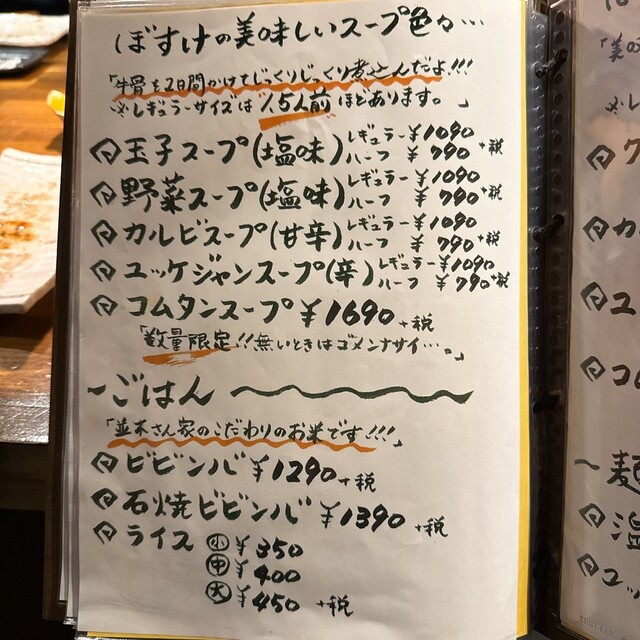 ぼすけの美味しいスープ色々…
「牛骨を2日間かけてじっくりじっくり煮込んだよ!!!
※レギュラーサイズは1.5人前ほどあります。」
玉子スープ(塩味) レギュラー ¥1090
ハーフ ¥790 +税
野菜スープ(塩味) レギュラー ¥1090
ハーフ ¥790 +税
カルビスープ(甘辛) レギュラー ¥1090
ハーフ ¥790 +税
ユッケジャンスープ(辛) レギュラー ¥1090
ハーフ ¥790 +税
コムタンスープ ¥1690 +税
「数量限定!!無いときはゴメンナサイ…。」
~ごはん
「並木さん家のこだわりのお米です!!!」
ビビンバ ¥1290 +税
石焼ビビンバ ¥1390 +税
ライス 小 ¥350
中 ¥400
大 ¥450 +税
「美味
※レ
ク
カル
ユ
コム
~麺
温
ユッ